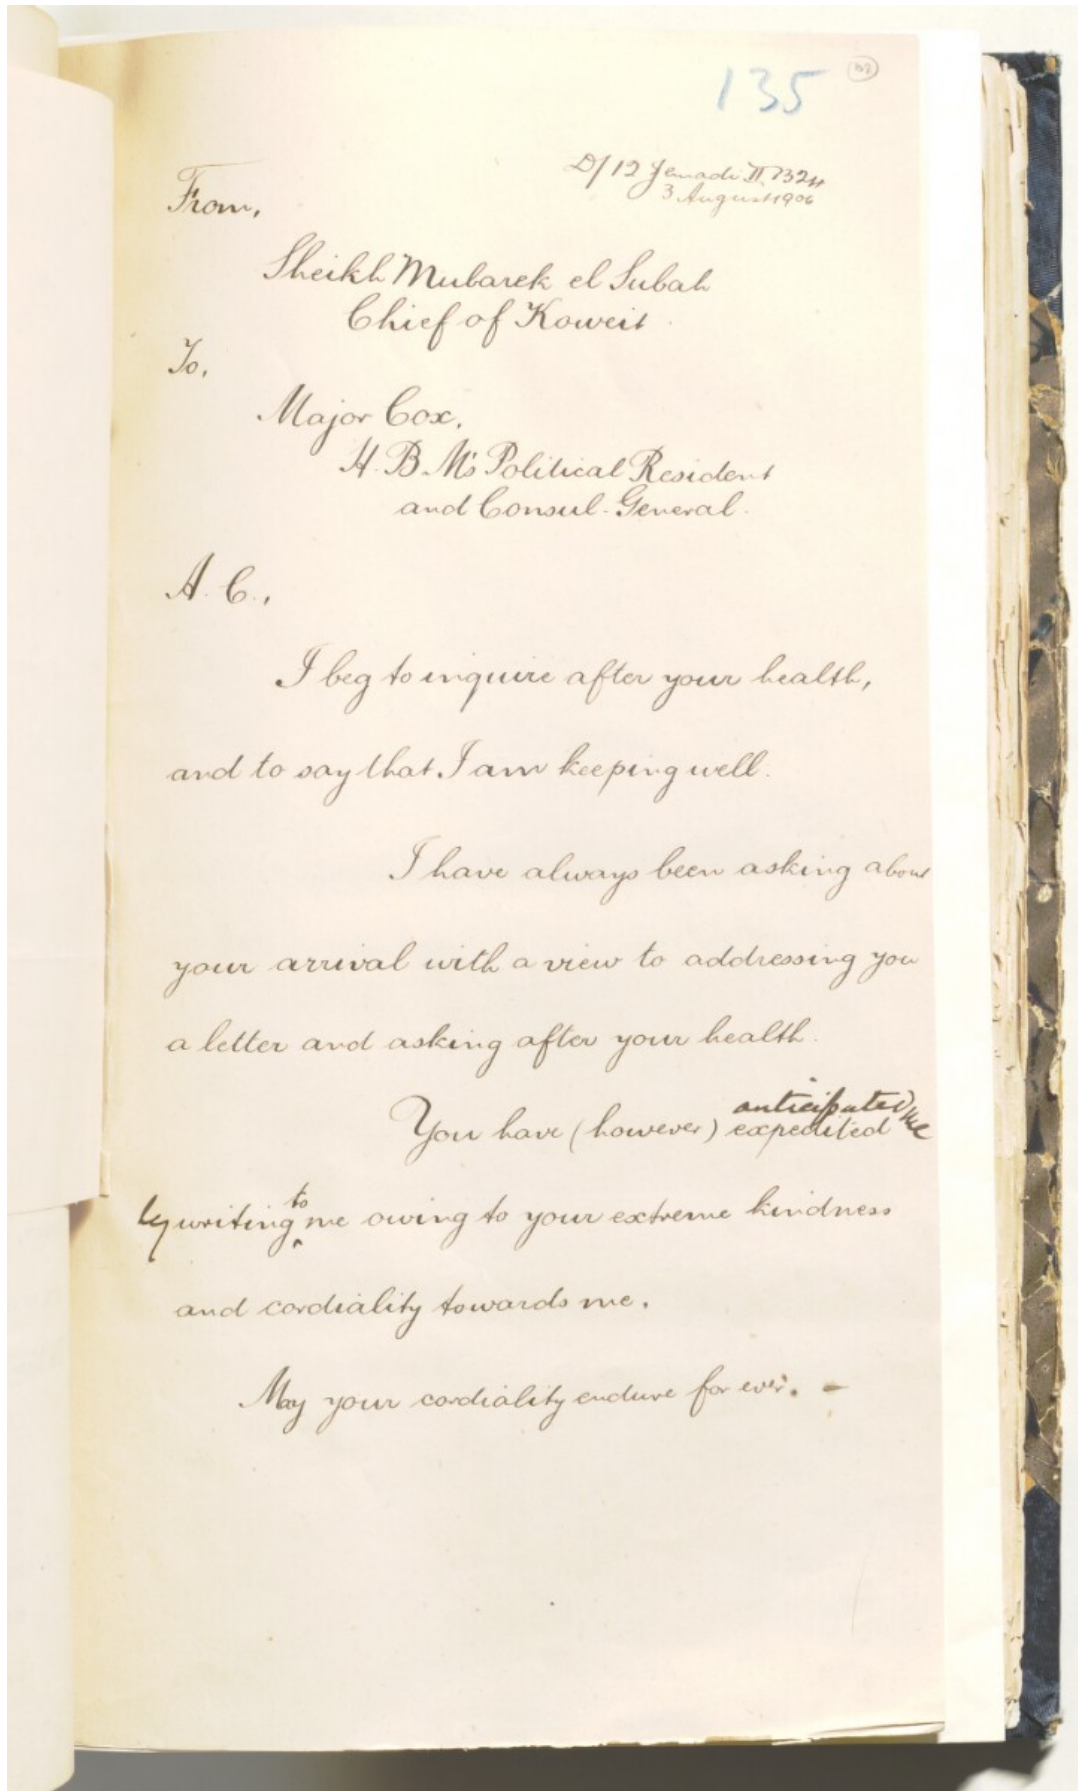 135
D/ 12 Jemadi II 1324
3 August 1906
From,
Sheikh Mubarek el Subah
Chief of Koweit.
To,
Major Cox,
H. B. M's Political Resident
and Consul-General.
A. C.,
I beg to inquire after your health,
and to say that I am keeping well.
I have always been asking about
your arrival with a view to addressing you
a letter and asking after your health.
anticipated me
You have (however) expedited
to
by writing me owing to your extreme kindness
and cordiality towards me.
May your cordiality endure for ever. -